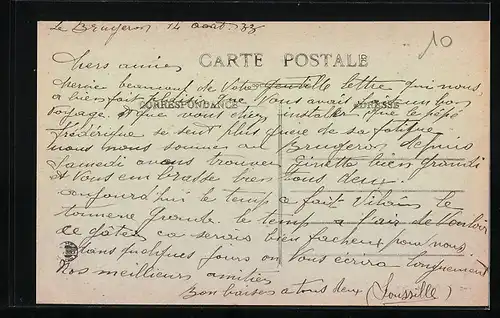 Le Brugeron 14 août 33
10
CARTE POSTALE
Chers amies
Merci beaucoup de Votre gentille lettre qui nous
a bien fait plaisir que Vous avait fait un bon
CORRESPONDANCE
ADRESSE
voyage. et que vous etes bien installer, que le pépé
Frédérique se sent plus guere de sa fatigue
nous nous somme au Brugeron depuis
Samedi avons trouver Ginette bien grandi
et Vous embrasse bien tous deux
aujourd'hui le temp a fait Vilain le
tonnerre gronde. le temp a l'air de Vouloir
ce gâter ca serais bien facheux pour nous
dans quelques jours on Vous écrira longuement
Nos meilleurs amitier
Bon baisers a tous deux (Loussille)